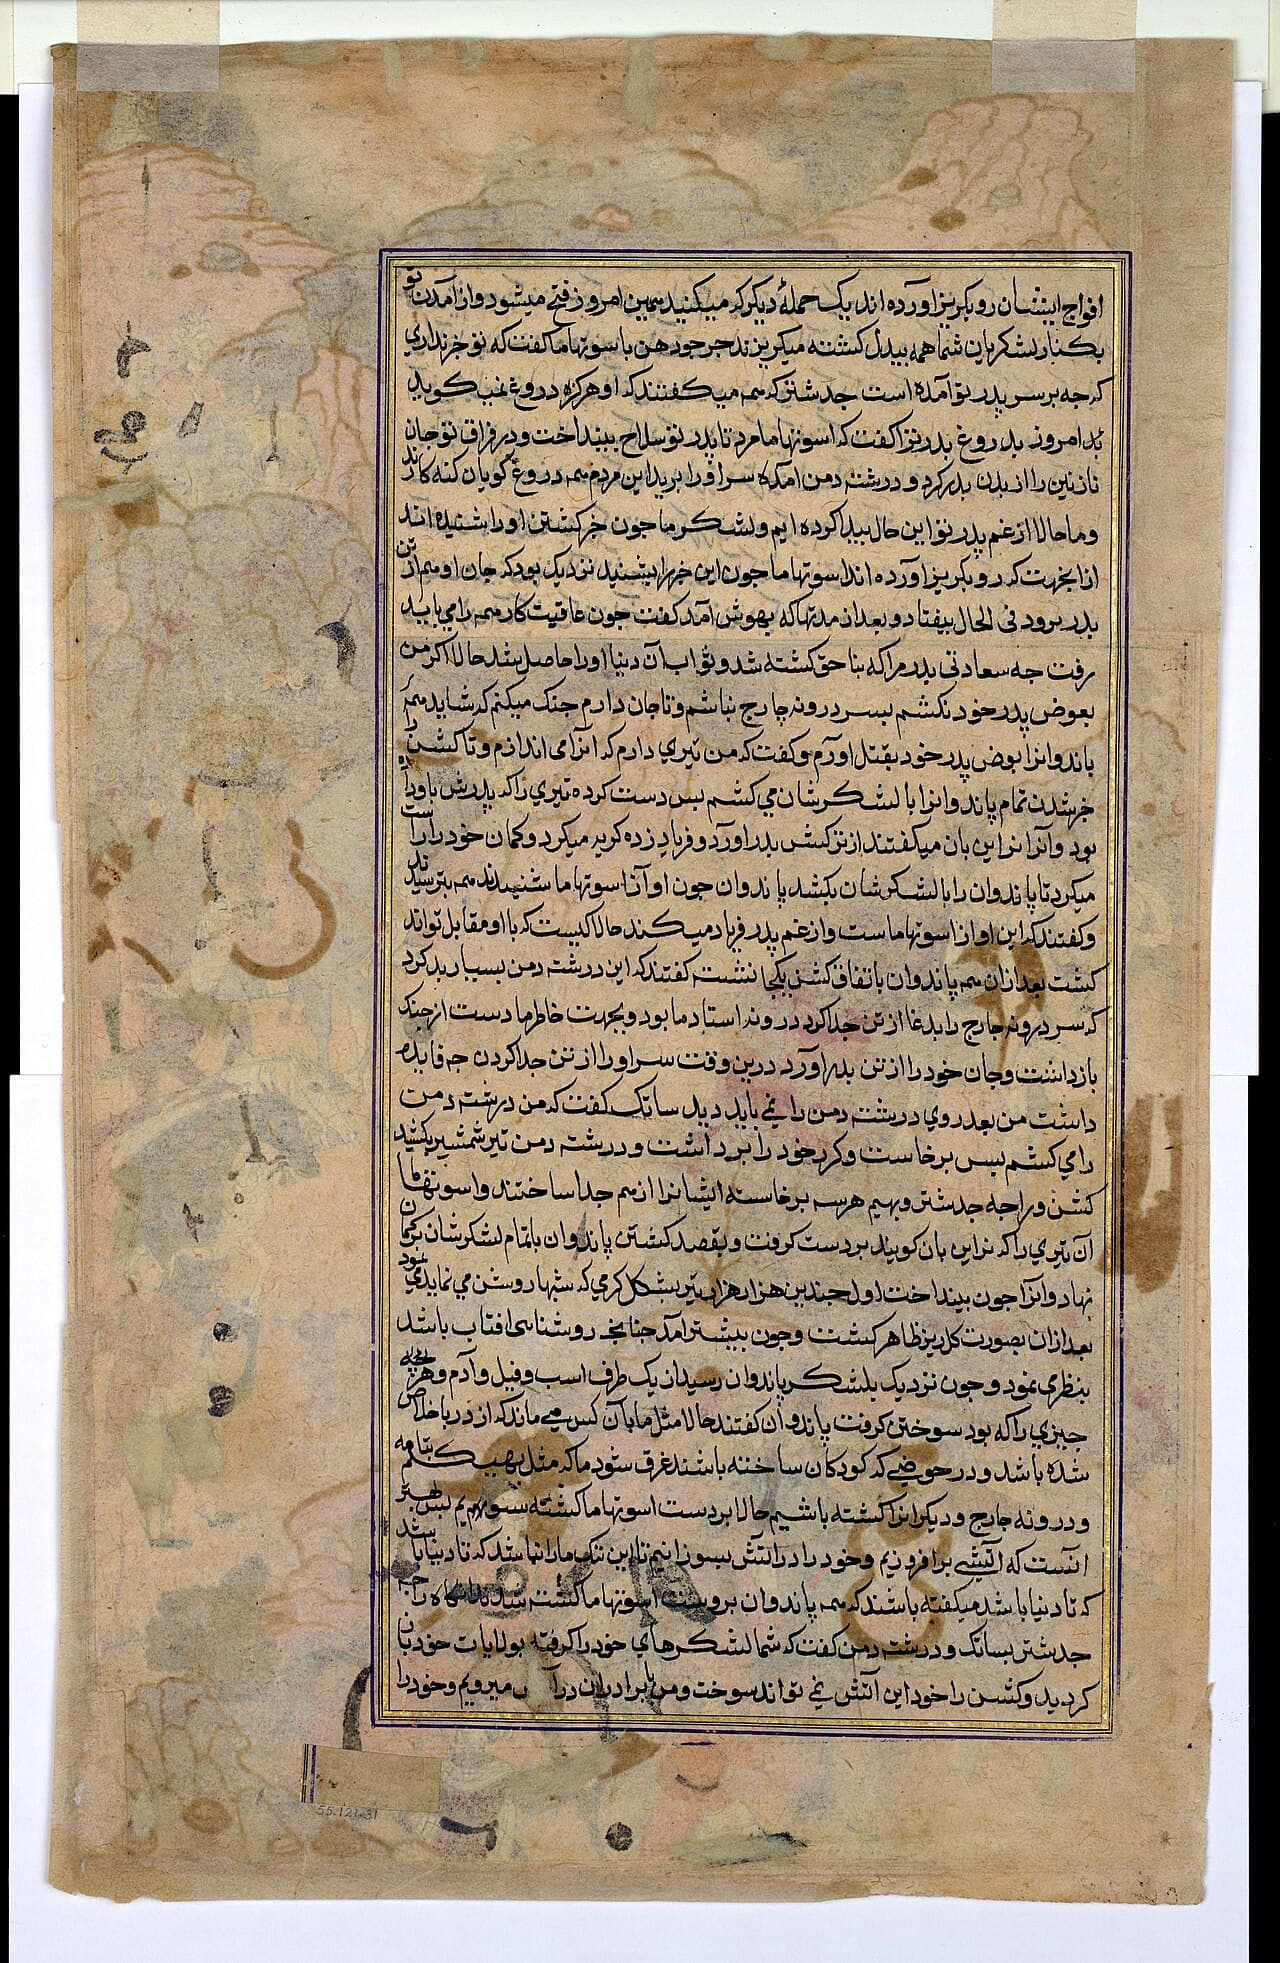 افواج ایشان رو بکریز اورده اند یک حملهٔ دیکر که میکنید همین امروز فتح میشود و از آمدن تو
بکنار لشکریان شما همه بیدل کشته میکریزند جرجودهن با سوتهاما کفت که تو خبر نداری
که جه بر سر پدر تو آمده است جدشتر که همه میکفتند که او هرکز دروغ نمیکوید
امروز بدروغ پدر ترا کفت که اسوتهاما مرد تا پدر تو سلاح بینداخت و در فراق تو جان
نازنین را از بدن بدر کرد و درشته دمن امده سر او را برید این مردم همه دروغ کویان کنه کارند
و ما حالا از غم پدر تو این حال پیدا کرده ایم و لشکر ما جون خبر کشتن او را شنیده اند
ازا بجهت که رو بکریز اورده اند اسوتهاما جون این خبر را بشنید نزدیک بود که جان او هم از تن
بدر برود فی الحال بیفتاد و بعد از مدتها که بهوش آمد کفت جون عاقبت کار همه را می باید
رفت جه سعادتی پدر مرا که بنا حق کشته شد و ثواب آن دنیا او را حاصل شد حالا اکر من
بعوض پدر خود نکشم پسر درونه چارج نباشم و تا جان دارم جنک میکنم که شاید همه
پاندوانرا بعوض پدر خود بقتل اورم و کفت که من تیری دارم که انرا می اندازم و تا کشن را
خبر شدن تمام پاندوانرا با لشکرشان می کشم پس دست کرده تیری را که پدرش باو داده
بود و آنرا نراین بان میکفتند از ترکش بدر اورد و فریاد زده کریه میکرد و کمان خود را راست
میکرد تا پاندوان را با لشکرشان بکشد پاندوان جون اواز اسوتهاما شنیدند همه بترسیدند
و کفتند که این اواز اسوتهاماست و از غم پدر فریاد میکند حالا کیست که با او مقابل تواند
کشت بعد ازان همه پاندوان باتفاق کشن یکجا نشسته کفتند که این درشته دمن بسیار بد کرد
که سر درونه جارج را بدغا از تن جدا کرد درونه استاد ما بود و بجهت خاطر ما دست از جنک
بازداشت و جان خود را از تن بدر اورد درین وقت سر او را از تن جدا کردن جه فایده
داشت من بعد روی درشته دمن را نمی باید دید ساتک کفت که من درشته دمن
را می کشم پس برخاست و کرز خود را برداشت و درشته دمن نیز شمشیر بکشید
کشن و راجه جدشتر و بهیم هر سه برخاسته ایشانرا از هم جدا ساختند و اسوتهاما
آن تیری را که نراین بان کویند بر دست کرفت و بقصد کشتن پاندوان با تمام لشکرشان بر کمان
نهاد و آنرا جون بینداخت اول جندین هزار هزار تیر بشکل کرمی که شبها روشن می نماید می نمود
بعد ازان بصورت کلریز ظاهر کشت و جون بیشتر آمد جنانجه روشنایی افتاب باشد
بنظر می نمود و جون نزدیک بلشکر پاندوان رسید از یک طرف اسب و فیل و آدم و هر جه
جیزی را که بود سوختن کرفت پاندوان کفتند حالا مثل ما بآن کس می ماند که از دریا خلاص
شده باشد و در حوضی که کودکان ساخته باشند غرق شود ما که مثل بهیکم پتامه
و درونه جارج و دیکرانرا کشته باشیم حالا بر دست اسوتهاما کشته شویم پس بهتر
انست که آتشی برافروزیم و خود را در آتش بسوزانیم تا این ننک ما را نباشد که تا دنیا باشد
که تا دنیا باشد میکفته باشند که همه پاندوان بر دست اسوتهاما کشته شدند راجه
جدشتر بساتک و درشته دمن کفت که شما لشکرهای خود را کرفته بولایات خود باز
کردید و کشن را خود این آتش نمی تواند سوخت و من با برادران میرویم و خود را
55.121.31